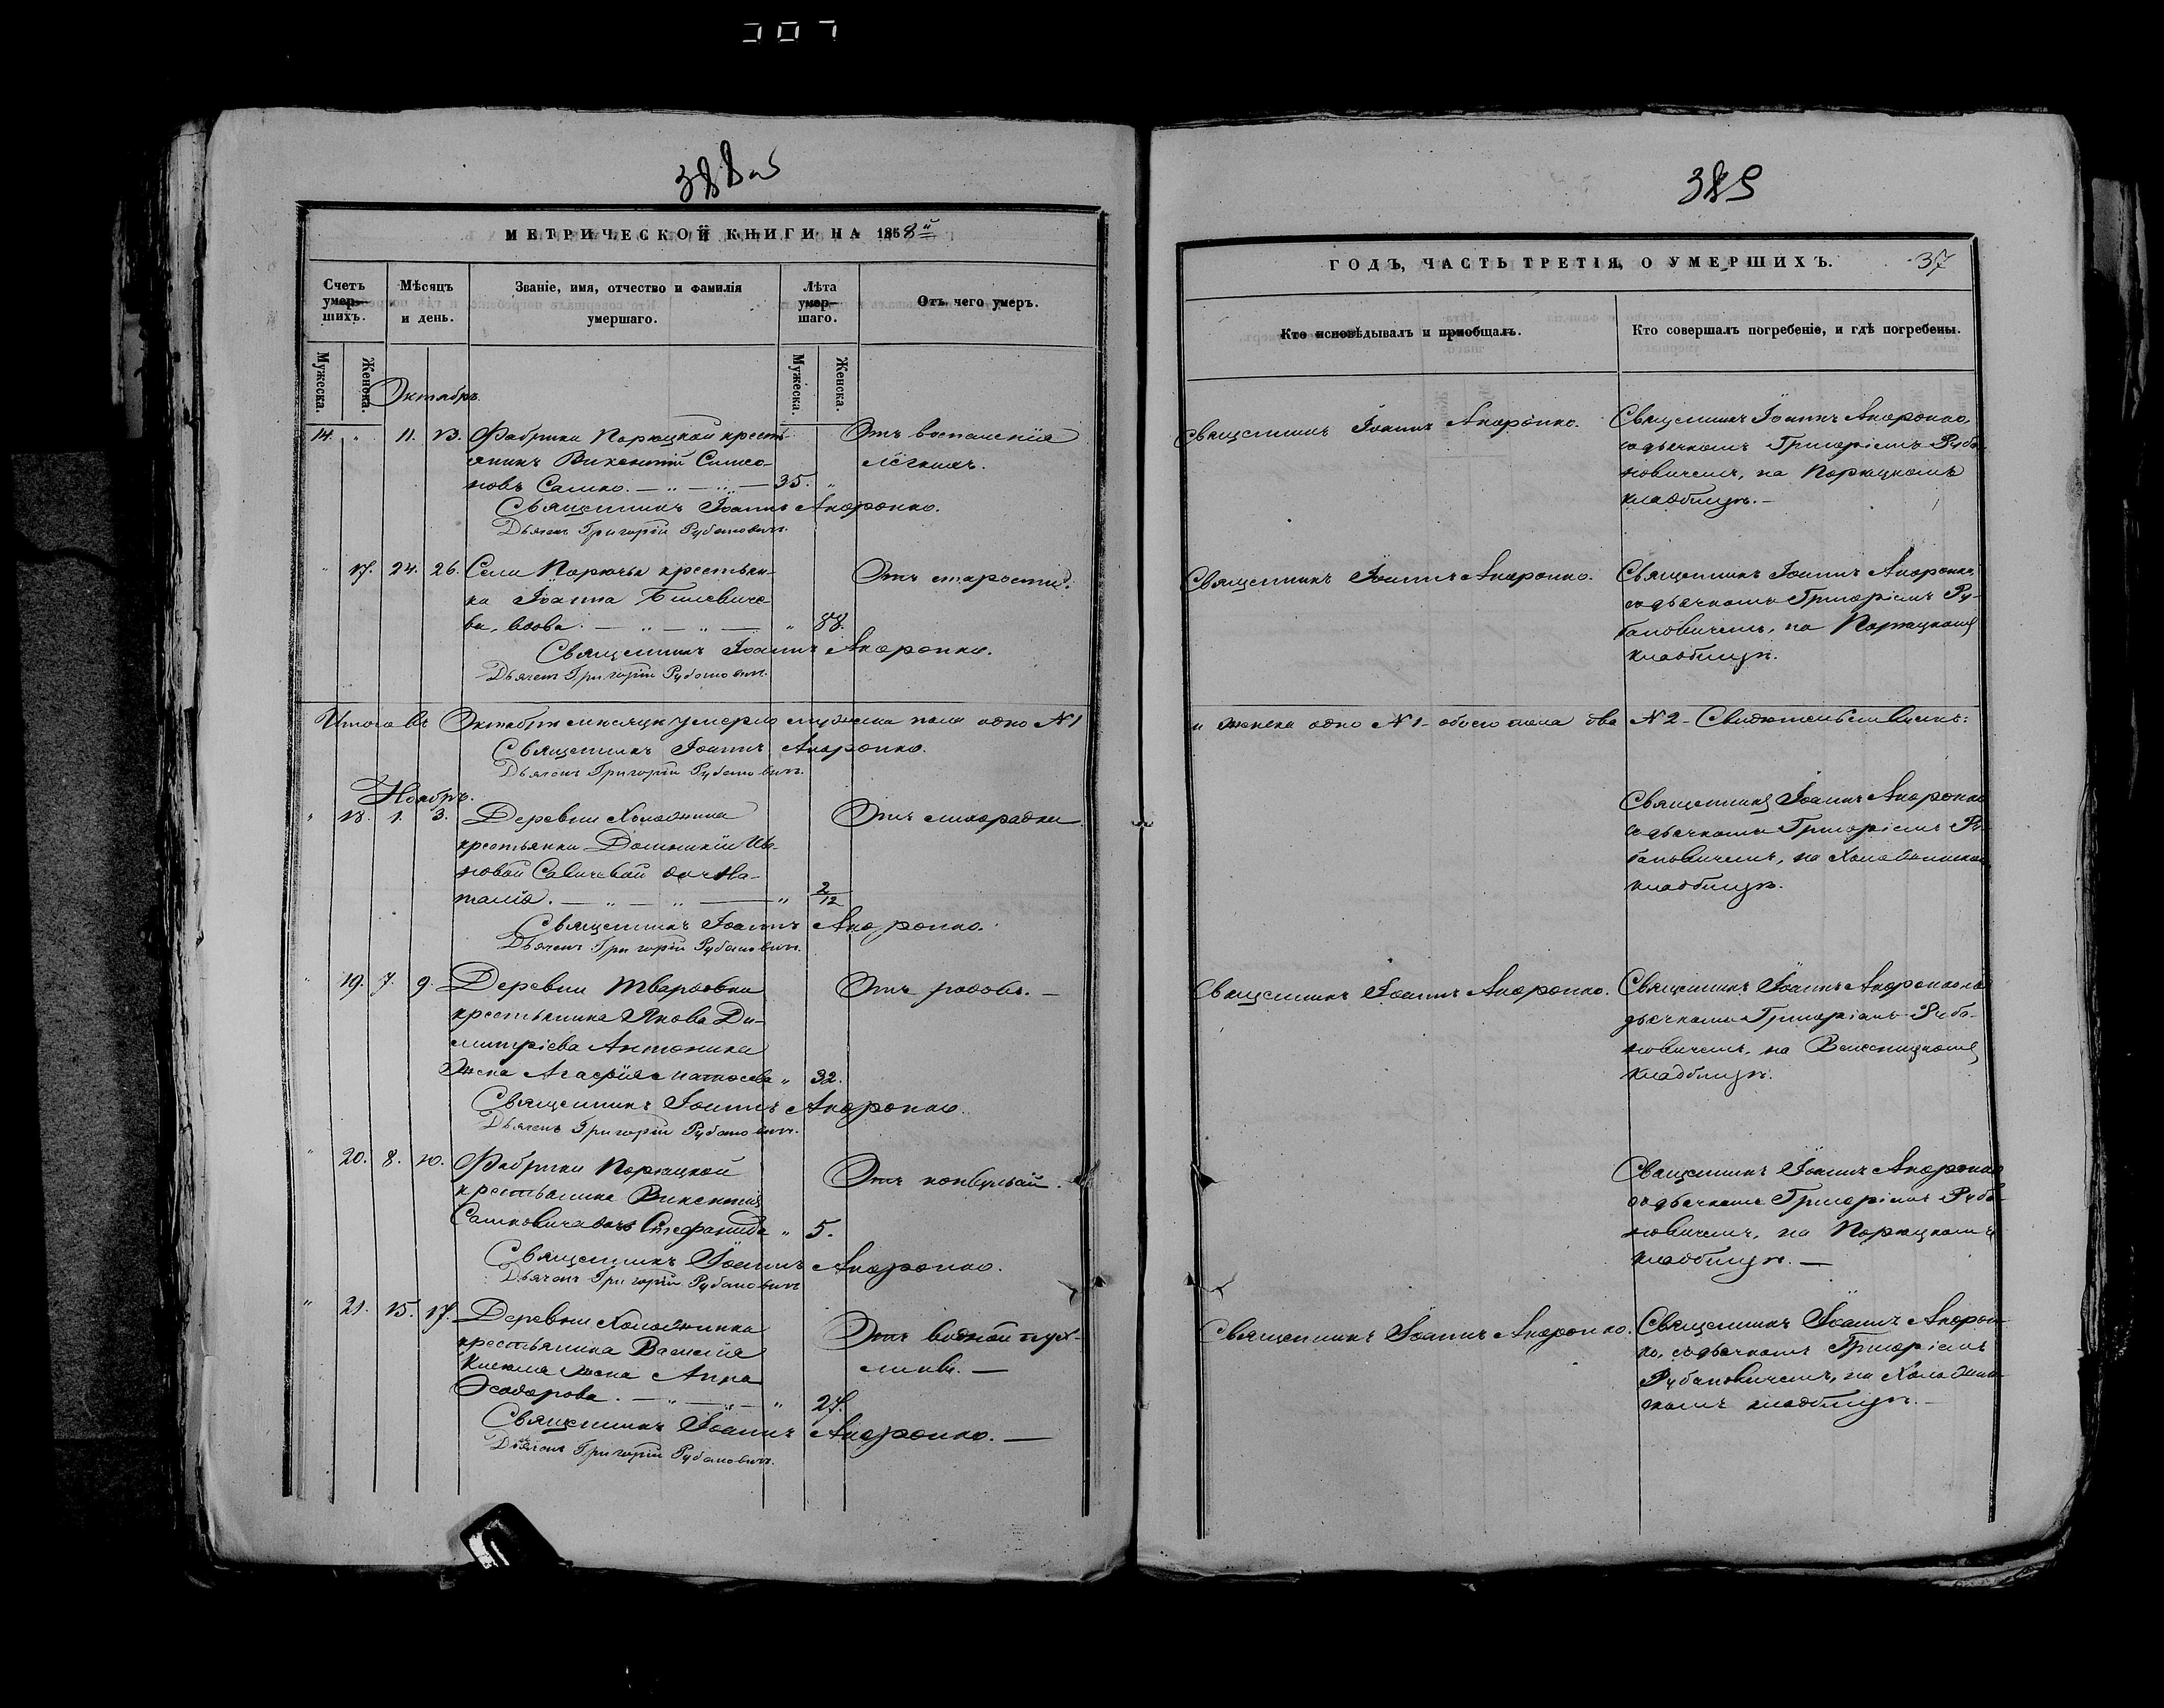 307
388 об
МЕТРИЧЕСКОЙ КНИГИ НА 1868й
Счетъ умер-шихъ.
Мѣсяцъ и день.
Званіе, имя, отчество и фамилія умершаго.
Лѣта умер-шаго.
Отъ чего умеръ.
Мужеска.
Женска.
Мужеска.
Женска.
Октябрь.
14. " 11. 13. Фабрики Порѣцкой кресть-
янинъ Викентій Симео-
новъ Сашко. 35. "
Отъ воспаленія
лёгкихъ.
Священникъ Іоаннъ Андронко.
Дьячекъ Григорій Рубановичъ.
" 17. 24. 26. Села Порѣчья крестьян-
ка Іоанна
ва, вдова. " 88.
Отъ старости.
Священникъ Іоаннъ Андронко.
Дьячекъ Григорій Рубановичъ.
Итого въ Октябрѣ мѣсяцѣ умерло мужеска пола одно №1
Священникъ Іоаннъ Андронко.
Дьячекъ Григорій Рубановичъ.
Ноябрь.
" 18. 1. 3. Деревни Холожина
крестьянки Домникіи Ива-
новой Савичевой дочь На-
талія. " 2/12
Отъ лихорадки
Священникъ Іоаннъ Андронко.
Дьячекъ Григорій Рубановичъ.
" 19. 7. 9. Деревни Твардовки
крестьянина Якова Ди-
митріева Антоника
жена Агафія Матѳеева " 32.
Отъ родовъ.
Священникъ Іоаннъ Андронко.
Дьячекъ Григорій Рубановичъ.
" 20. 8. 10. Фабрики Порѣцкой
крестьянина Викентія
Сашковича дочь Стефанида " 5.
Отъ конвульсій.
Священникъ Іоаннъ Андронко.
Дьячекъ Григорій Рубановичъ
" 21. 15. 17. Деревни Холожинка
крестьянина Василія
жена Анна
Ѳеодорова. " 27.
Отъ водной пух-
лины.
Священникъ Іоаннъ Андронко.
Дьячекъ Григорій Рубановичъ.
389
ГОДЪ, ЧАСТЬ ТРЕТІЯ, О УМЕРШИХЪ. 37
Кто исповѣдывалъ и пріобщалъ.
Кто совершалъ погребеніе, и гдѣ погребены.
Священникъ Іоаннъ Андронко.
Священникъ Іоаннъ Андронко,
съ дьячкомъ Григоріемъ Руба-
новичемъ, на Порѣцкомъ
кладбищѣ.
Священникъ Іоаннъ Андронко.
Священникъ Іоаннъ Андронко
съ дьячкомъ Григоріемъ Ру-
бановичемъ, на Порѣцкомъ
кладбищѣ.
и женска одно №1 - обоего пола два №2 - Свидѣтельствуемъ:
Священникъ Іоаннъ Андронко
съ дьячкомъ Григоріемъ Ру-
бановичемъ, на
кладбищѣ.
Священникъ Іоаннъ Андронко.
Священникъ Іоаннъ Андронко съ
дьячкомъ Григоріемъ Руба-
новичемъ, на
кладбищѣ.
Священникъ Іоаннъ Андронко
съ дьячкомъ Григоріемъ Руба-
новичемъ, на Порѣцкомъ
кладбищѣ.
Священникъ Іоаннъ Андронко.
Священникъ Іоаннъ Андрон-
ко, съ дьячкомъ Григоріемъ
Рубановичемъ, на Холожин-
скомъ кладбищѣ.